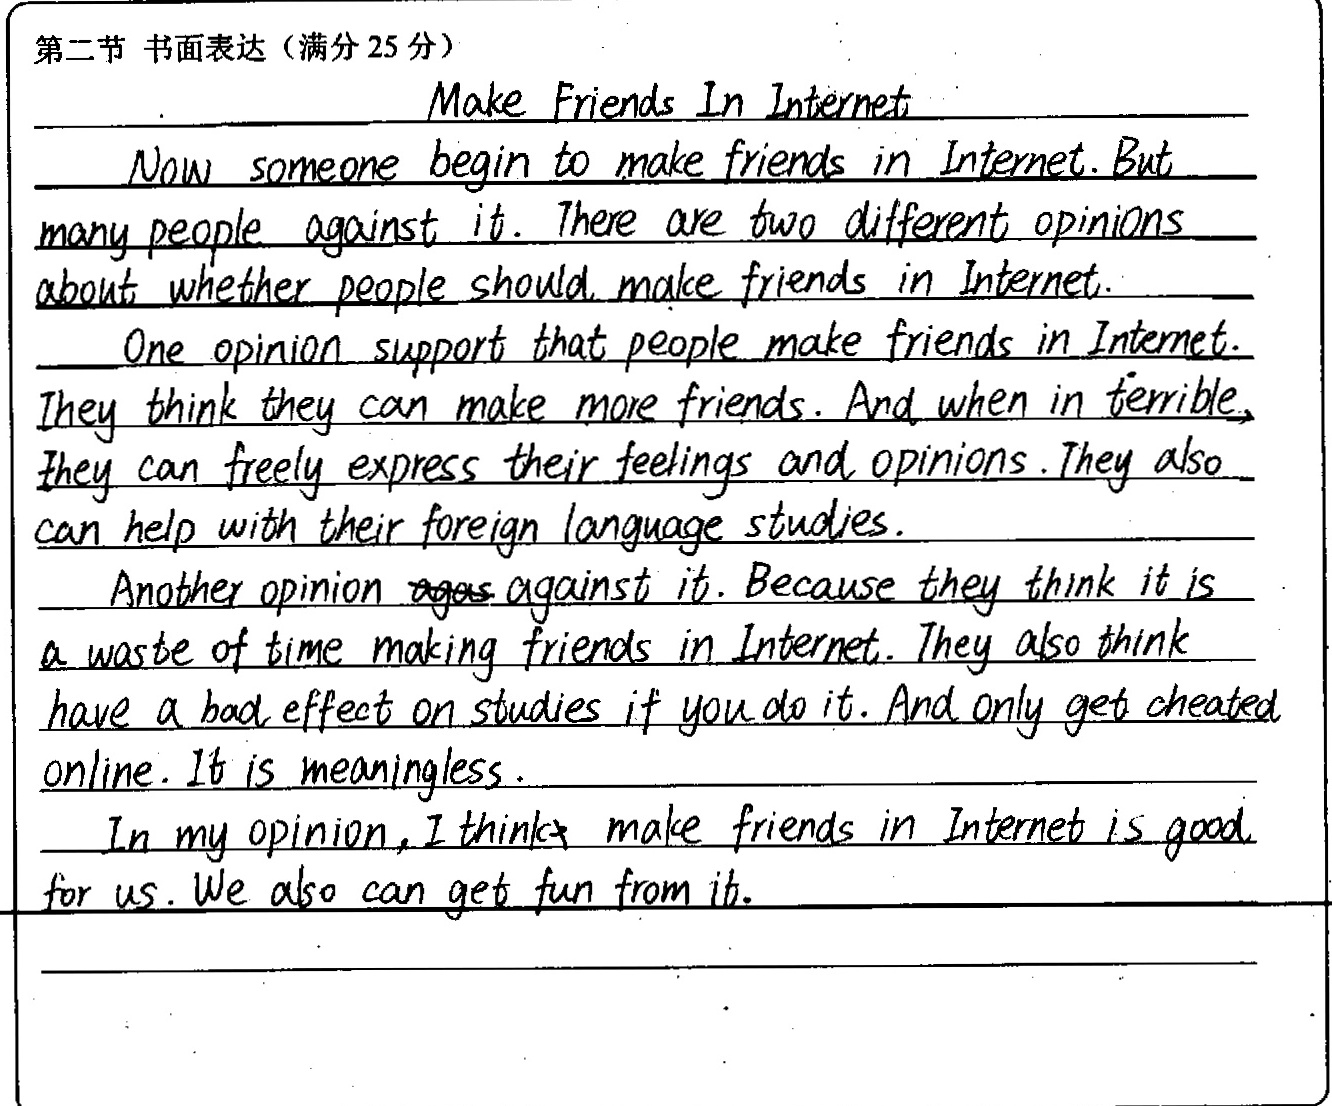 第二节 书面表达（满分 25 分）
Make Friends In Internet
Now someone begin to make friends in Internet. But
many people against it. There are two different opinions
about whether people should make friends in Internet.
One opinion support that people make friends in Internet.
They think they can make more friends. And when in terrible,
they can freely express their feelings and opinions. They also
can help with their foreign language studies.
Another opinion against it. Because they think it is
a waste of time making friends in Internet. They also think
have a bad effect on studies if you do it. And only get cheated
online. It is meaningless.
In my opinion, I think make friends in Internet is good
for us. We also can get fun from it.